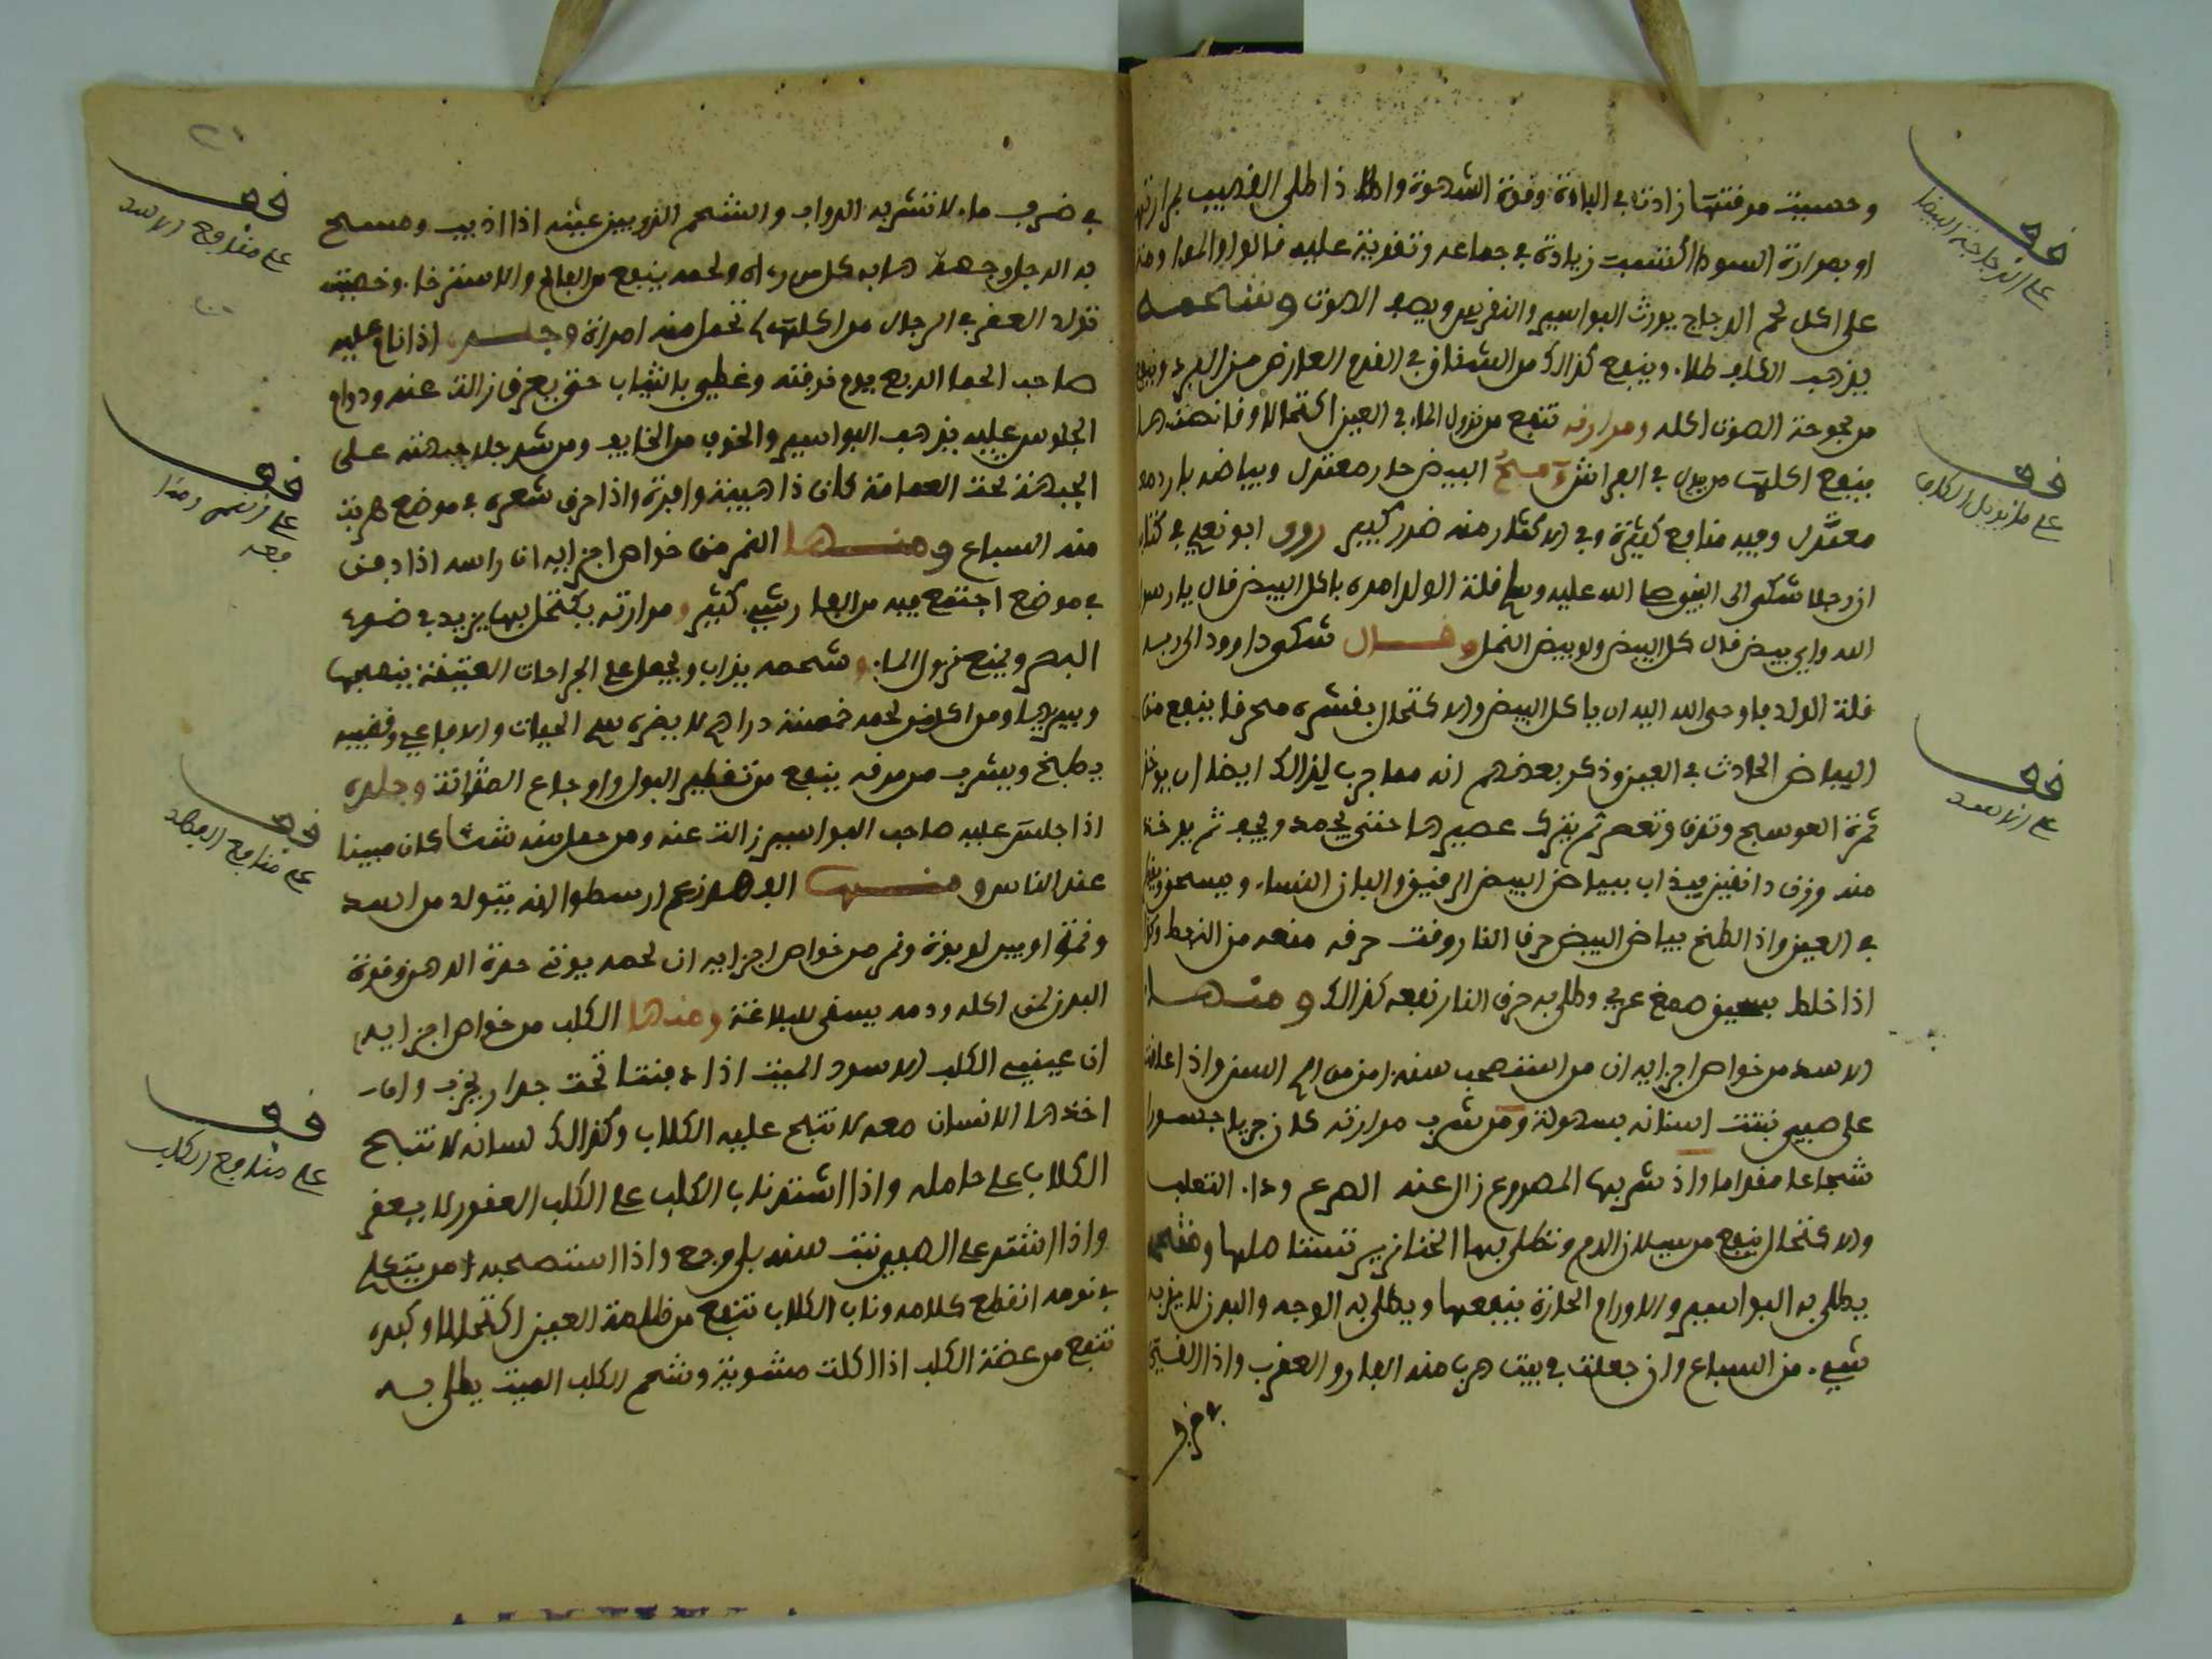 وحسيت مرقتها زادت في الباءة وقوة الشهوة واذا طلى القضيب بمرارتها
او بمرارة السوداء اكتسبت زيادة في جماعه وتقوية عليه قالوا والمداومة
على اكل لحم الدجاج يورث البواسير والنقرس ويصف الصوت وشحمه
يذهب الكلف طلاء وينفع كذالك من الشقاق في القدم العارض من البرد وينفع
من بحوحة الصوت اكله ومرارته تنفع من نزول الماء في العين اكتحالا وقانصتها
ينفع اكلها من يبول في الفراش مح البيض حار معتدل وبياضه بارد
معتدل وفيه منافع كثيرة وفي الاكثار منه ضرر كبير روى ابو نعيم في كتاب
ان رجلا شكى الى النبي صلى الله عليه وسلم قلة الولد امره باكل البيض قال يا رسول
الله واي بيض قال كل البيض ولو بيض النمل وقال شكى داوود الى ربه
قلة الولد فاوحى الله اليه ان ياكل البيض والاكتحال بقشره محرقا ينفع من
البياض الحادث في العين وذكر بعضهم انه مما جرب لذالك ايضا ان يوخذ
ثمرة العوسج وتدق وتعصر ثم يترك عصيرها حتى يجمد ويجف ثم يوخذ
منه وزن دانقين يذاب ببياض البيض الرقيق والبان النساء ويسحق ويقطر
في العين واذا لطخ بياض البيض حرق النار وقت حرقه منعه من النفط وكذا
اذا خلط بسيف صمغ عربي وطلي به حرق النار نفعه كذالك ومنها
الاسد من خواص اجزايه ان من استصحب سنه امن من الم السن واذا علقت
على صبي نبتت اسنانه بسهولة ومن شرب مرارته كان جريا جسورا
شجاعا مقداما واذا شربها المصروع زال عنه الصرع وداء الثعلب
والاكتحال ينفع من سيلان الدم وتطلى بها الخنازير تستاصلها وشحمه
يطلى به البواسير والاورام الحارة ينفعها ويطلى به الوجه والبدن لا يقربه
شيء من السباع وان جعلت في بيت هرب منه الفار والعقرب واذا القي
في ضرب
في ضرب ماء لا تشربه الدواب والشحم الذي بين عينيه اذا اذيب ومسح
به الرجل وجهه هابه كل من راه ولحمه ينفع من الفالج والاسترخاء وخصيته
تولد العقر في الرجال من اكلها لا تحمل منه امراة وجلده اذا نام عليه
صاحب الحما الربع يوم نوبته وغطي بالثياب حتى يعرق زالت عنه ودوام
الجلوس عليه يذهب البواسير والخوف من الخايف ومن شد جلد جبهته على
الجبهة تحت العمامة كان ذا هيبة وافرة واذا احرق شعره في موضع هربت
منه السباع ومنها النمر من خواص اجزايه ان راسه اذا دفن
في موضع اجتمع فيه من الفار شيء كثير ومرارته يكتحل بها يزيد في ضوء
البصر ويمنع نزول الماء وشحمه يذاب ويجعل على الجراحات العتيقة ينضجها
ويبريها ومن اكل من لحمه خمسة دراهم لا يضره سم الحيات والافاعي وقضيبه
يطبخ ويشرب من مرقه ينفع من تقطير البول واوجاع المثانة وجلده
اذا جلس عليه صاحب البواسير زالت عنه ومن حمل منه شيئا كان مهيبا
عند الناس ومنها الفهد زعم ارسطو انه يتولد من اسد
ونمرة او بين لبوة ونمر من خواص اجزايه ان لحمه يورث حدة الذهن وقوة
البدن لمن اكله ودمه يسقى للبلاغة ومنها الكلب من خواص اجزايه
ان عيني الكلب الاسود الميت اذا دفنتا تحت جدار يخرب وان
اخذها الانسان معه لا تنبح عليه الكلاب وكذالك لسانه لا تنبح
الكلاب على حامله واذا شد ناب الكلب على الكلب العقور لا يعقر
واذا شد على الصبي نبتت سنه بلا وجع واذا استصحبه من يتكلم
في نومه انقطع كلامه وناب الكلاب تنفع من ظلمة العين اكتحالا وكبده
تنفع من عضة الكلب اذا اكلت مشوية وشحم الكلب الميت يطلى به
قف
على الدجاجة البيضا
قف
على ما يزيل الكلف
قف
على الاسد
قف
على منافع الاسد
قف
قف
على منافع الفهد
قف
على منافع الكلب